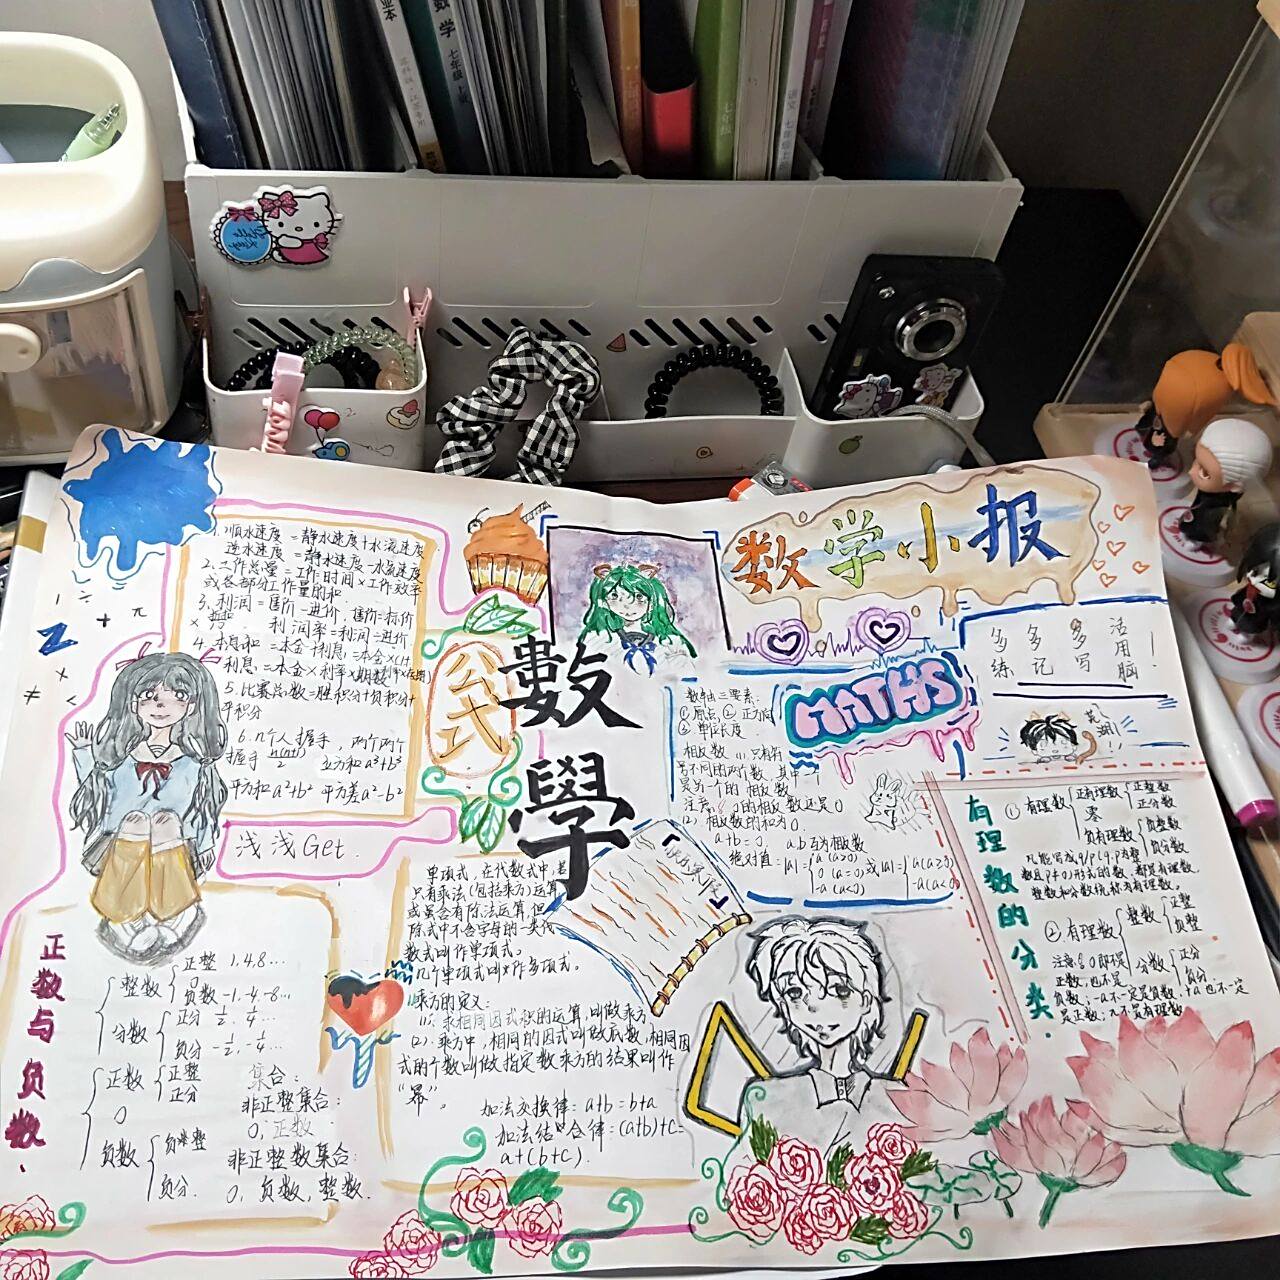 数学
七年级
Hello Kitty
数学小报
1. 顺水速度 = 静水速度+水流速度
逆水速度 = 静水速度-水流速度
2. 工作总量 = 工作时间×工作效率
或各部分工作量的和
3. 利润 = 售价-进价，售价=标价
利润率=利润÷进价
4. 本息和 = 本金+利息
利息 = 本金×利率×期数
5. 比赛总数=胜积分+负积分+
平积分
6. 几个人握手，两个两个
握手 立方和 a³+b³
平方和 a²+b² 平方差 a²-b²
公式
數學
浅浅Get.
多多多活
练记写用
脑!
MATHS
数轴三要素:
① 原点 ② 正方向
③ 单位长度.
相反数 (1). 只有符
号不同的两个数，其中一
是另一个的相反数
注意: 0的相反数还是0
(2). 相反数的和为0.
a+b=0. a.b互为相反数
绝对值=|a|={a (a>0) 0 (a=0) -a (a<0) 或|a|={a (a≥0) -a (a<0)
有理数的分类.
① 有理数 正有理数 正整数
正分数
零
负有理数 负整数
负分数
整数和分数统称为有理数。
② 有理数 整数 正整
负整
分数 正分
负分
注意: 0即不是
正数，也不是
负数; -a不一定是负数，+a也不一定
是正数; π不是有理数
单项式，在代数式中，若
只有乘法(包括乘方)运算
或虽含有除法运算，但
除式中不含字母的一类代
数式叫作单项式。
几个单项式叫作多项式。
乘方的定义:
(1). 求相同因式积的运算，叫做乘方
(2). 乘方中，相同的因式叫做底数，相同因
式的个数叫做指定数乘方的结果叫作
“幂”。
加法交换律: a+b=b+a
加法结合律=(a+b)+c=
a+(b+c).
正数与负数.
整数 正整 1,4,8...
0
负数 -1,-4,-8...
分数 正分 ½,¼...
负分 -½,-¼...
正数 正整
正分
0
负数 负整
负分.
集合:
非正整集合:
0, 正数.
非正整数集合:
0, 负数, 整数.